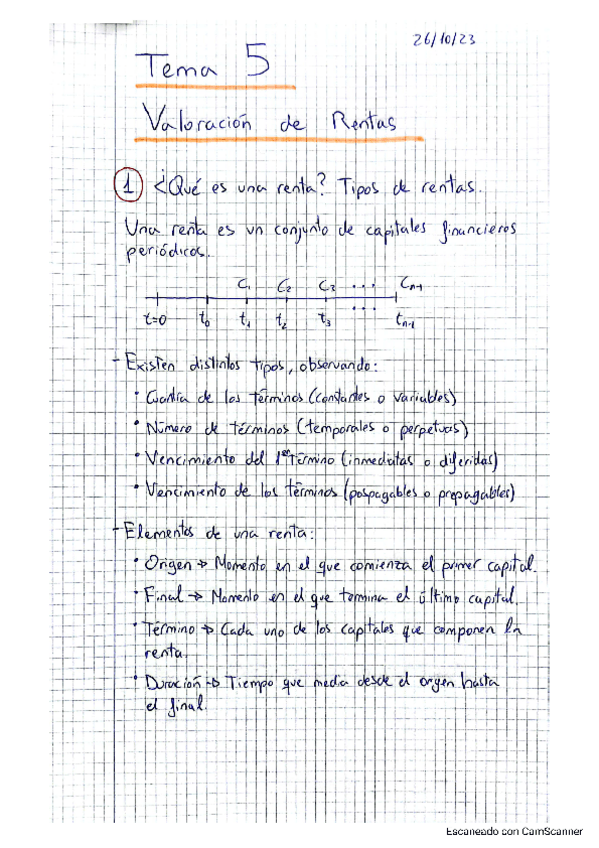 26/10/23
Tema 5
Valoración de Rentas
1 ¿Qué es una renta? Tipos de rentas.
Una renta es un conjunto de capitales financieros
periódicos.
C₁ C₂ C₃ ... Cn-1
t=0 t₀ t₁ t₂ t₃ ... tn-1
- Existen distintos tipos, observando:
• Cuantía de los términos (constantes o variables)
• Número de términos (temporales o perpetuas)
• Vencimiento del 1er término (inmediatas o diferidas)
• Vencimiento de los términos (pospagables o prepagables)
- Elementos de una renta:
• Origen → Momento en el que comienza el primer capital.
• Final → Momento en el que termina el último capital.
• Término → Cada uno de los capitales que componen la
renta.
• Duración → Tiempo que media desde el origen hasta
el final.
Escaneado con CamScanner